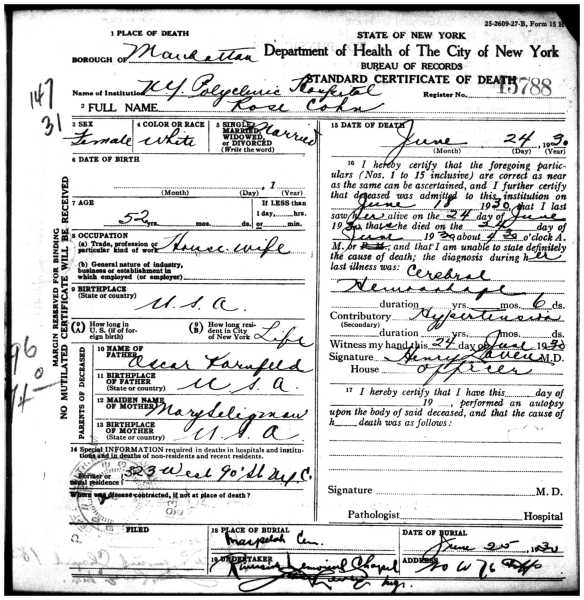 25-2609-27-B, Form 15 H
1 PLACE OF DEATH
STATE OF NEW YORK
BOROUGH OF Manhattan
Department of Health of The City of New York
BUREAU OF RECORDS
Name of Institution N.Y. Polyclinic Hospital
STANDARD CERTIFICATE OF DEATH
Register No. 15788
147
31
2 FULL NAME Rose Cohn
3 SEX Female
4 COLOR OR RACE White
5 SINGLE, MARRIED, WIDOWED, OR DIVORCED (Write the word) Married
6 DATE OF BIRTH
, 1
(Month) (Day) (Year)
7 AGE 52 yrs. mos. ds.
If LESS than
1 day, hrs.
or min.
8 OCCUPATION
(a) Trade, profession or
particular kind of work Housewife
(b) General nature of industry,
business or establishment in
which employed (or employer)
9 BIRTHPLACE
(State or country) U.S.A.
How long in
U. S. (if of for-
eign birth)
How long resi-
dent in City
of New York Life
PARENTS OF DECEASED
10 NAME OF
FATHER Oscar Kornfeld
11 BIRTHPLACE
OF FATHER
(State or country) U S A
12 MAIDEN NAME
OF MOTHER Mary Seligman
13 BIRTHPLACE
OF MOTHER
(State or country) U.S.A.
14 Special INFORMATION required in deaths in hospitals and institu-
tions and in deaths of non-residents and recent residents.
Former or
usual residence 323 West 90' St N.Y.C.
Where was disease contracted, if not at place of death?
MARGIN RESERVED FOR BINDING
NO MUTILATED CERTIFICATE WILL BE RECEIVED
96
15 DATE OF DEATH
June 24 1930
(Month) (Day) (Year)
16 I hereby certify that the foregoing partic-
ulars (Nos. 1 to 15 inclusive) are correct as near
as the same can be ascertained, and I further certify
that deceased was admitted to this institution on
June 18 1930, that I last
saw her alive on the 24 day of June
1930, that she died on the 24 day of
June 1930, about 4 30 o'clock A.
M., and that I am unable to state definitely
the cause of death; the diagnosis during her
last illness was: Cerebral
Hemorrhage
duration yrs. mos. 6 ds.
Contributory Hypertension
(Secondary)
duration yrs. mos. ds.
Witness my hand this 24 day of June 1930
Signature Henry M.D.
House officer
17 I hereby certify that I have this day of
19 , performed an autopsy
upon the body of said deceased, and that the cause of
h death was as follows:
Signature M. D.
Pathologist Hospital
FILED
18 PLACE OF BURIAL
Maspelah Cem.
DATE OF BURIAL
June 25, 1930
19 UNDERTAKER
Riverside Memorial Chapel
Mgr.
ADDRESS